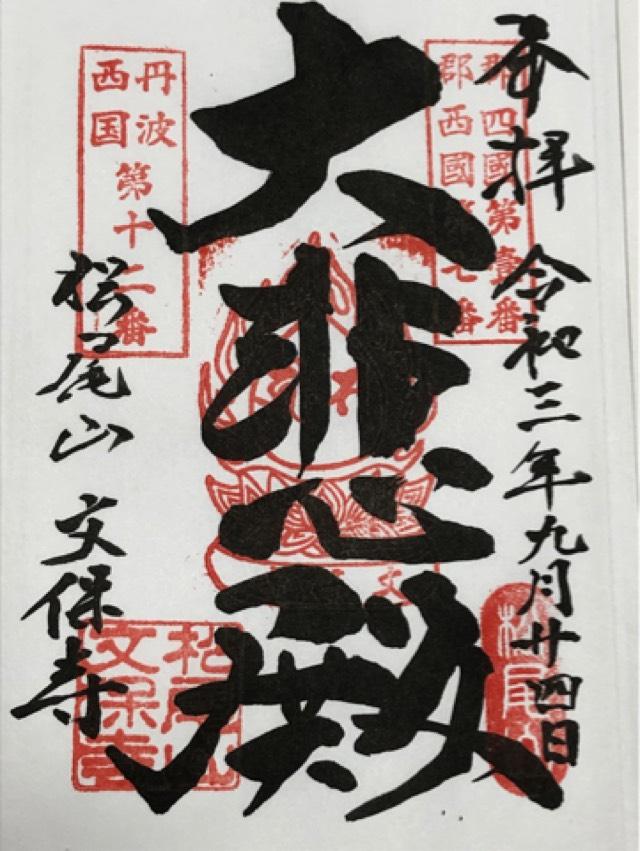 奉拝 令和三年九月廿四日
郡四國第壹番
郡西國第七番
大悲殿
丹波
西国
第十二番
松尾山 文保寺
松尾山
文保寺